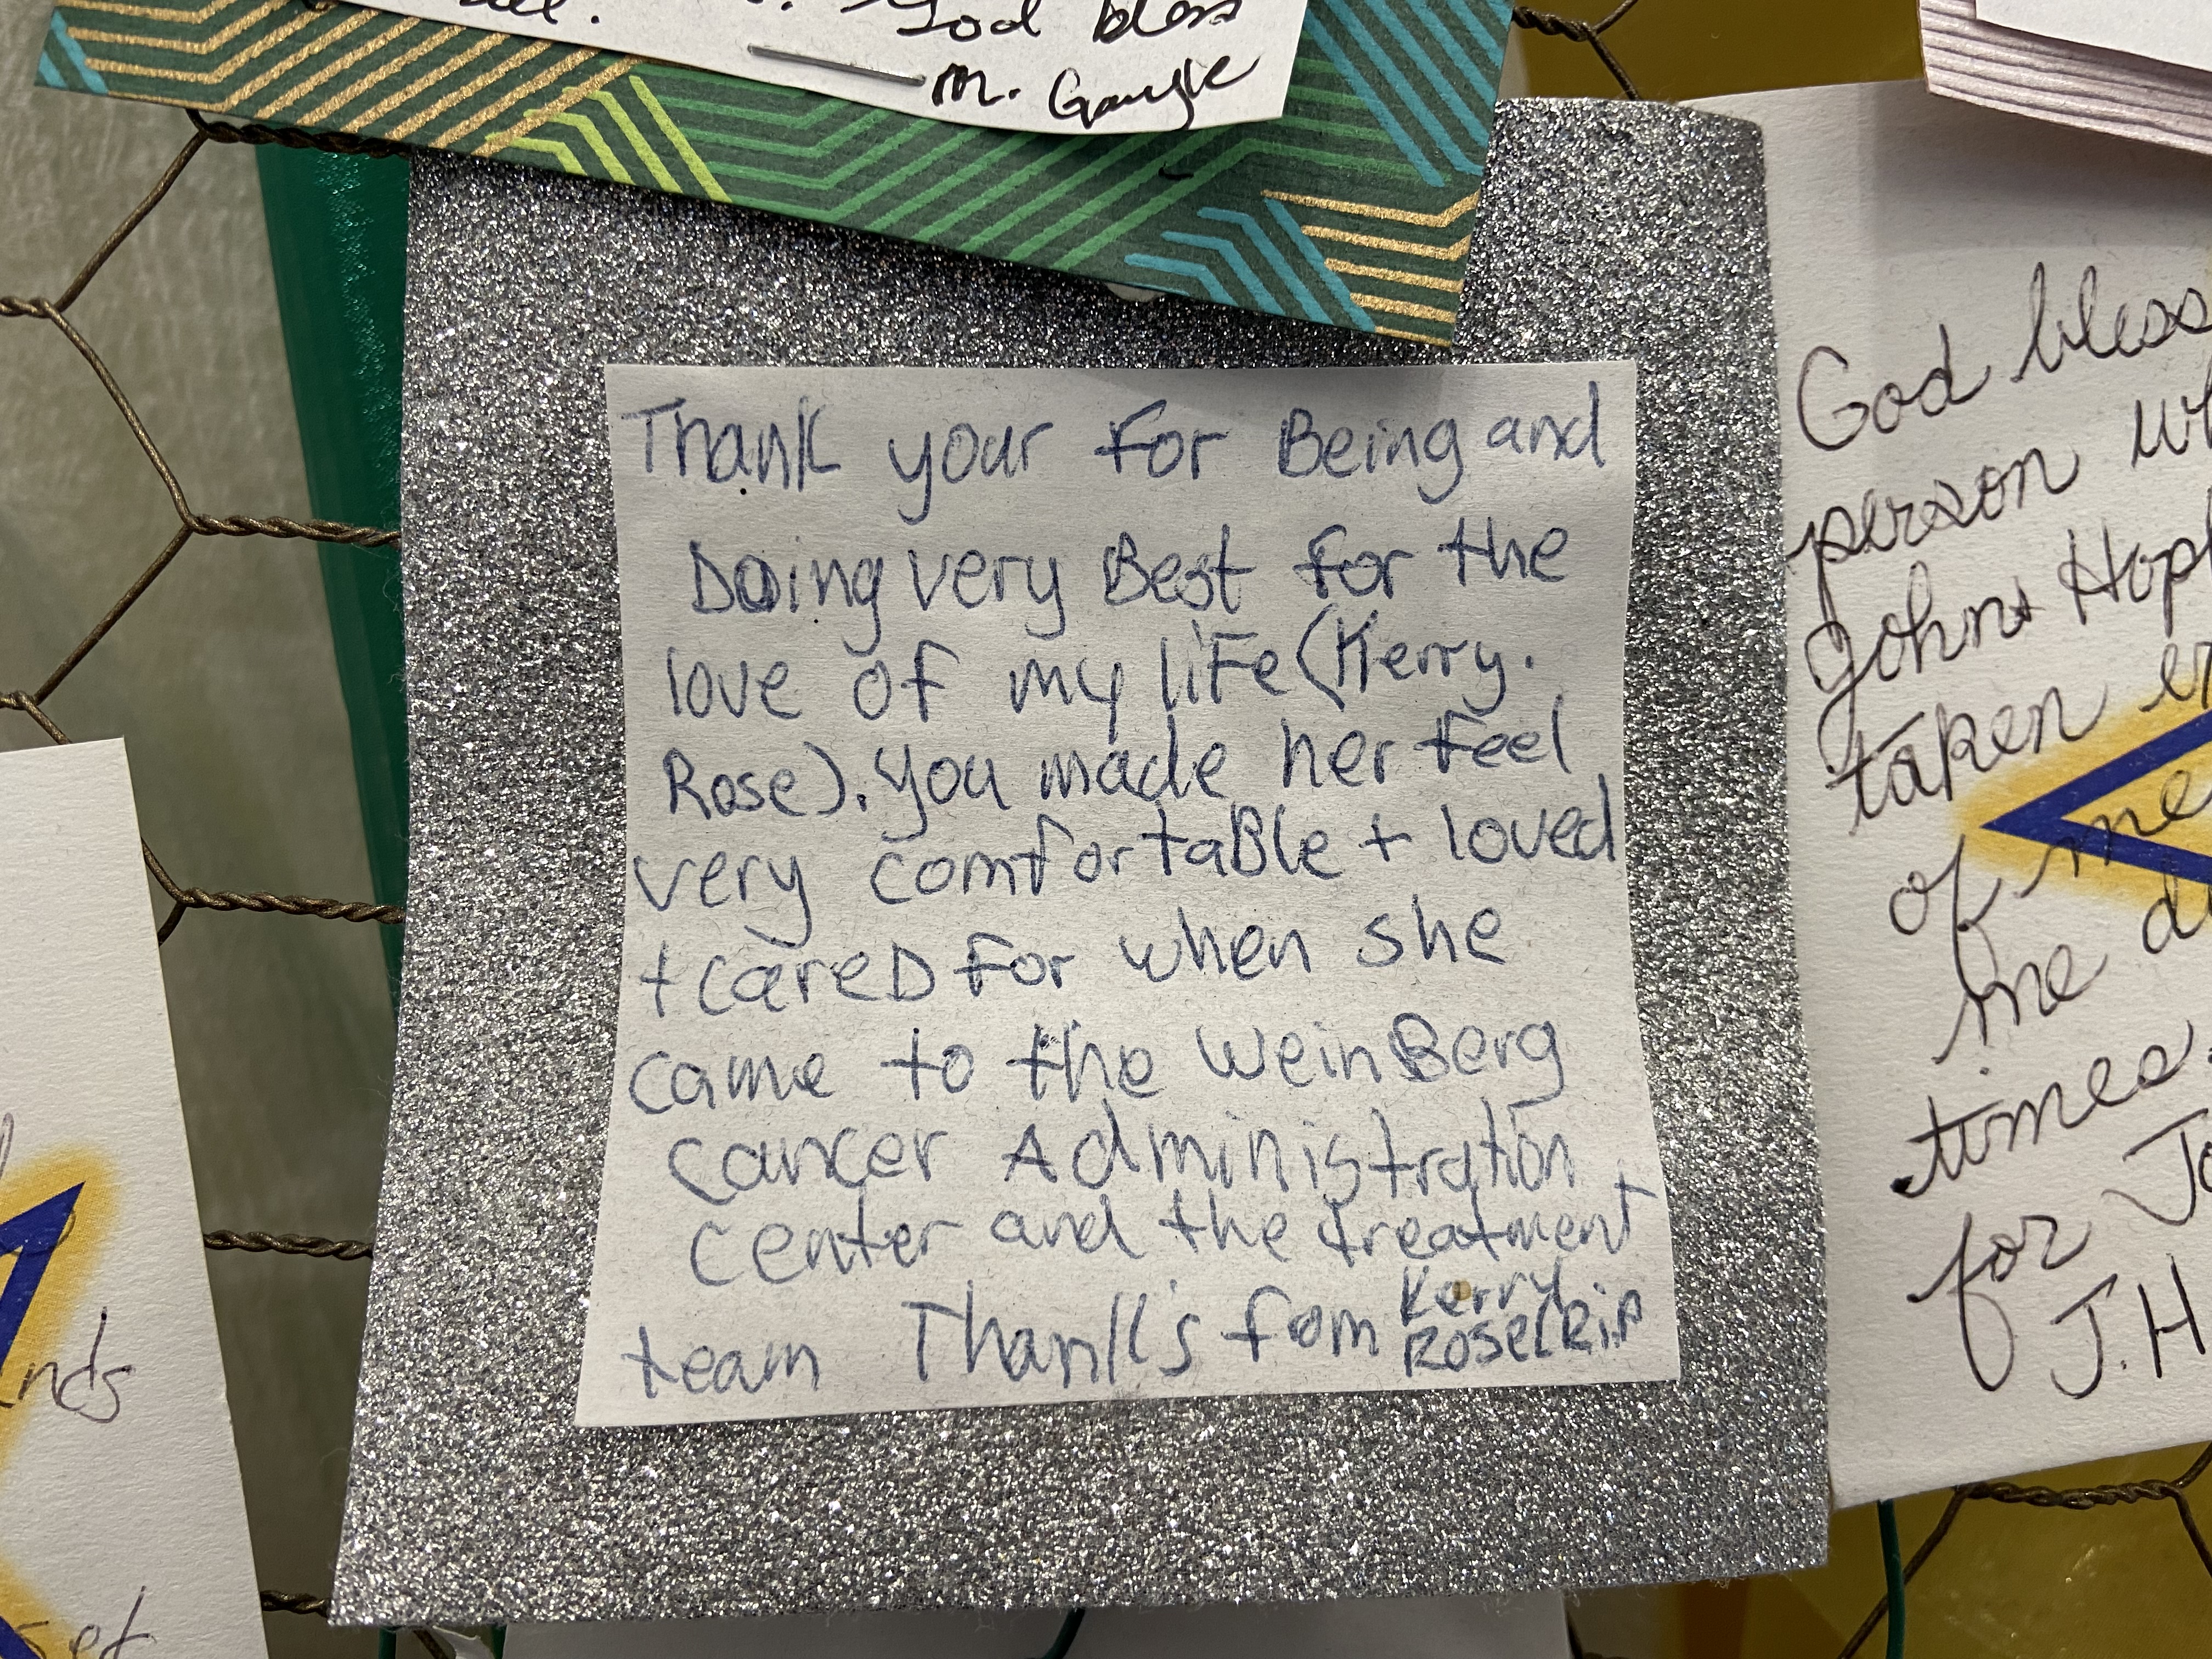 God bless
M.
Thank your for Being and
Doing very Best for the
love of my life (Kerry.
Rose). you made her feel
very comfortaBle + loved
+ careD for when she
came to the WeinBerg
Cancer Administration
Center and the treatment
team Thank's fom Kerry
Rose(Rip
God bless
person
Johns
taken
of me
me
times.
for
J.H
nds